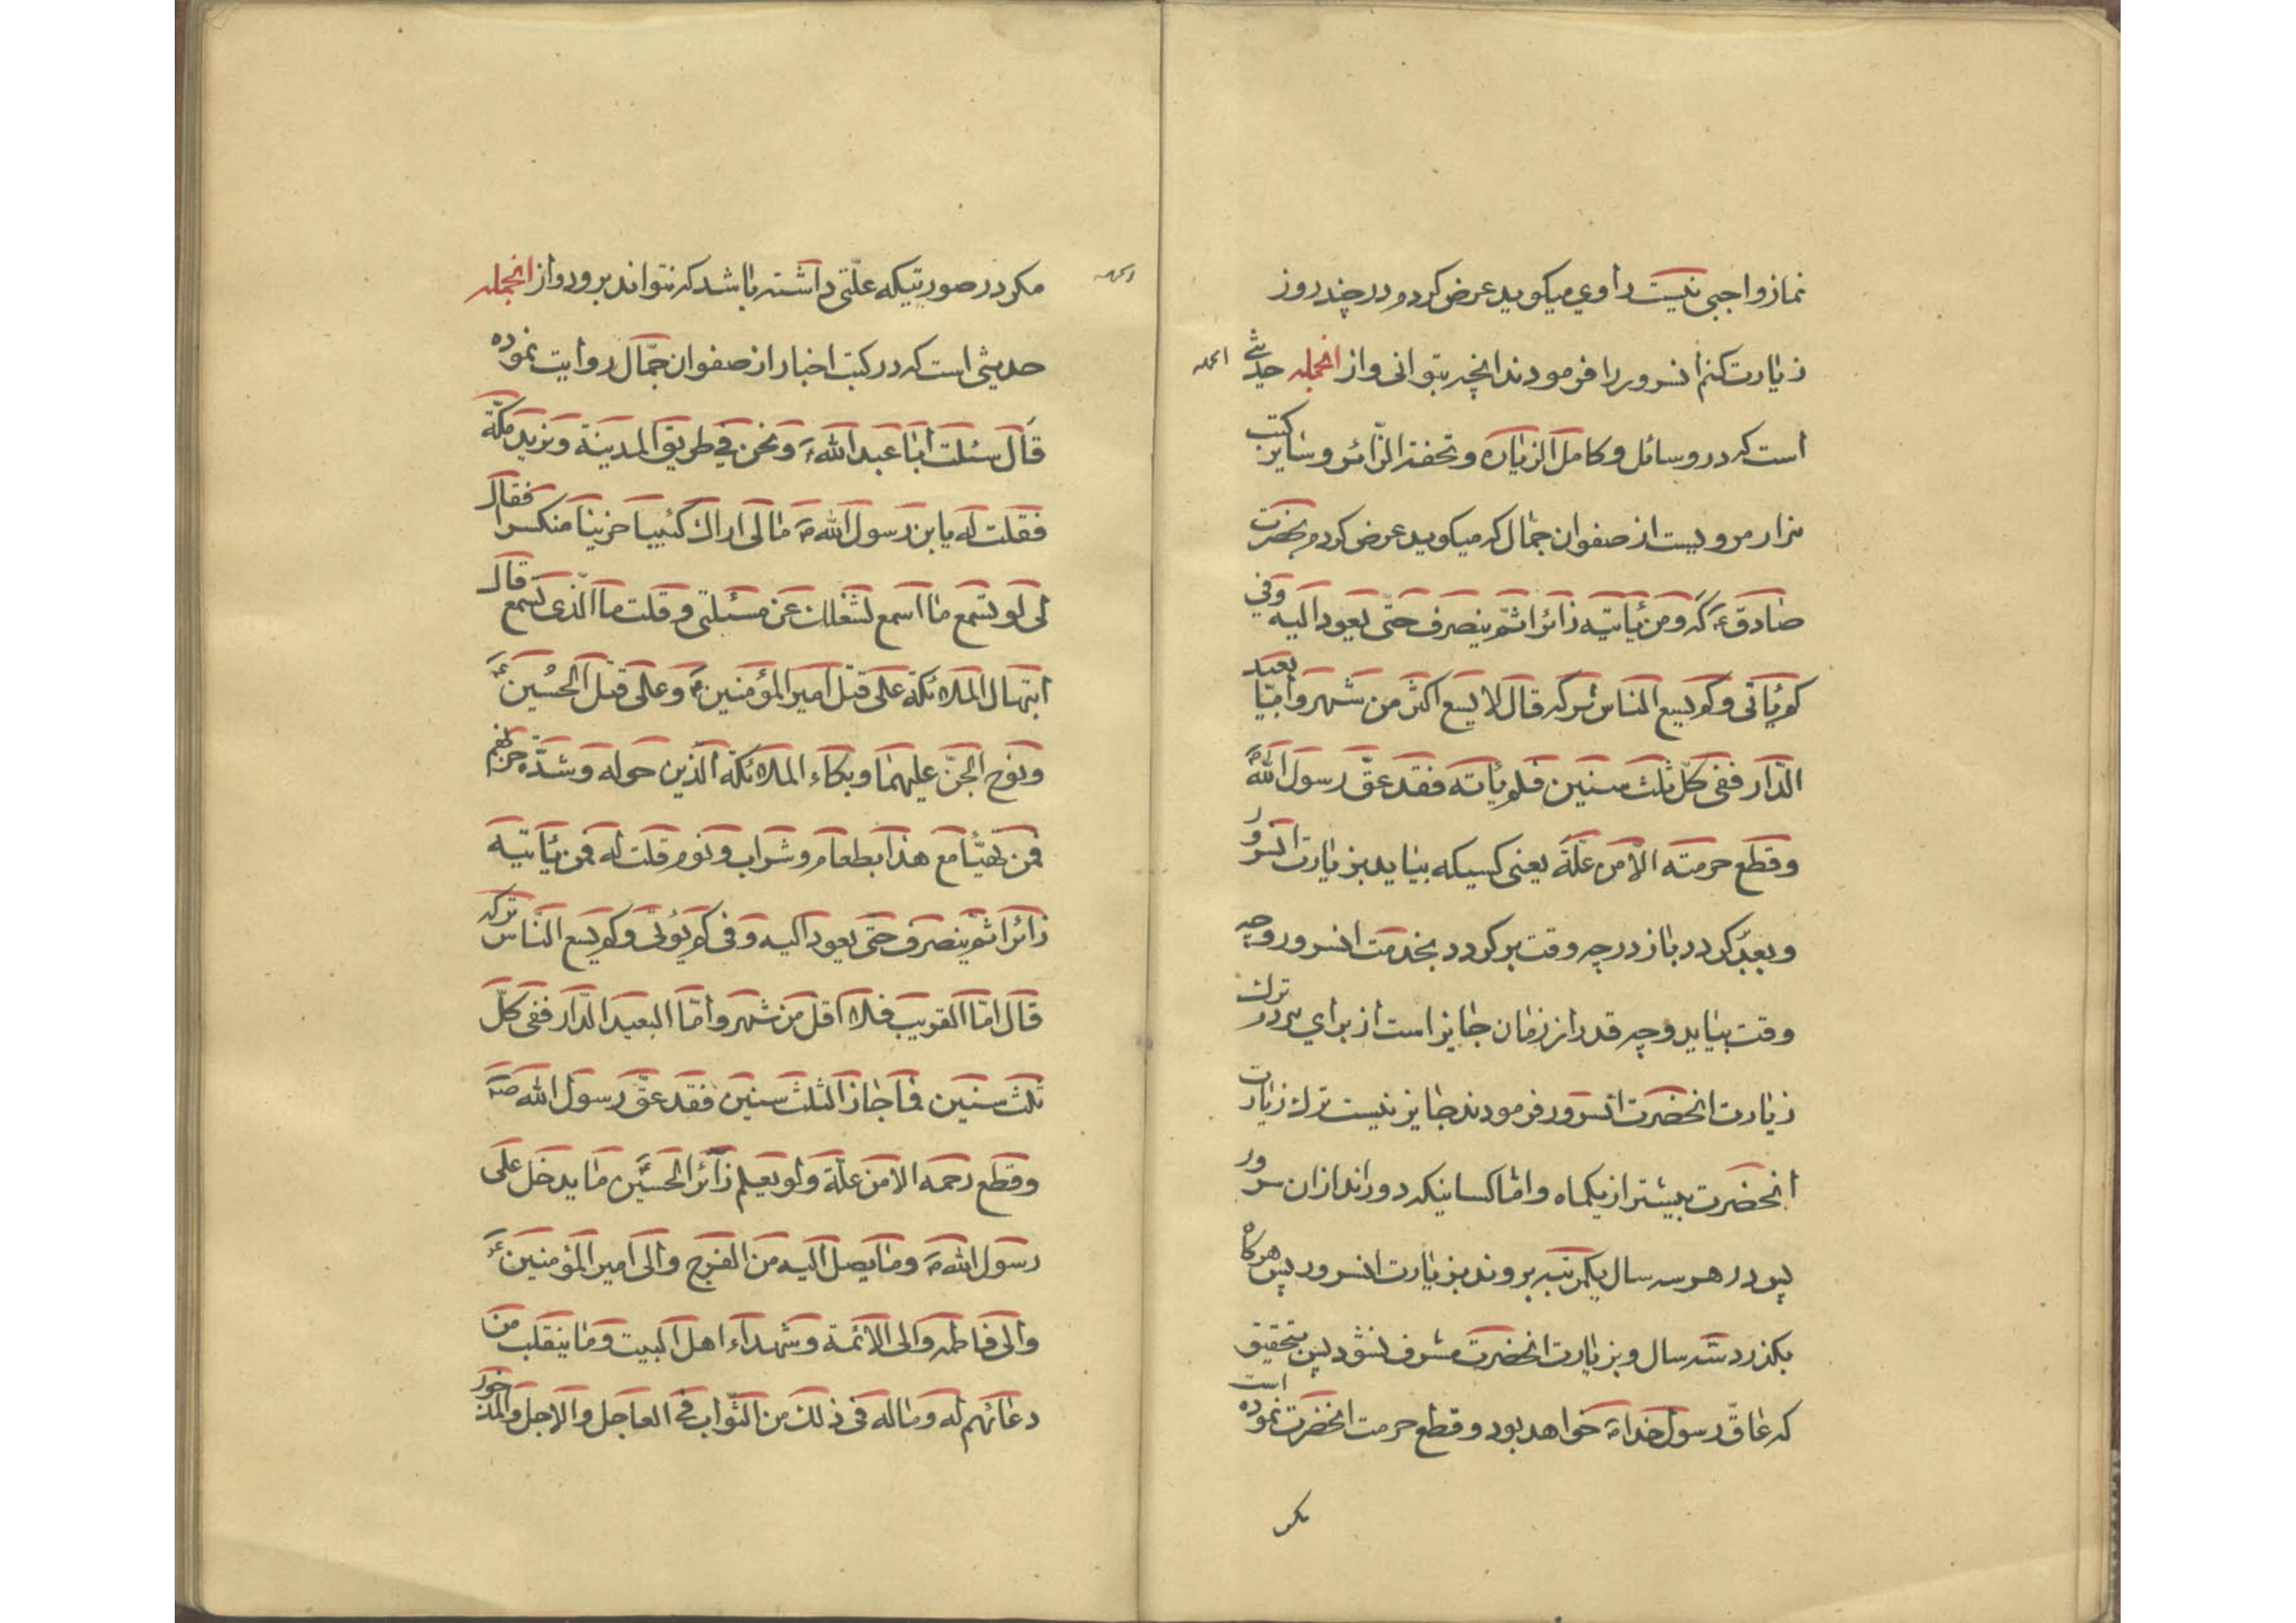 نماز واجبی نیست راوی میکوید عرض کردم در چند روز
زیارت کنم انسرور را فرمودند انچه بتوانی و از انجمله حدیثی
است که در وسائل و کامل الزیاره و تحفة الزّائر و سایر کتب
مزار مرویست از صفوان جمال که میکوید عرض کردم بحضرت
صادقؑ که و من یأتیه زائرا ثمّ ینصرف حتّی یعود الیه و فی
کم یأتی و کم یسع الناس ترکه قال لا یسع اکثر من شهر و امّا بعید
الدّار ففی کلّ ثلث سنین فلم یأته فقد عقّ رسول اللهؐ
و قطع حرمته الّا من علّة یعنی کسیکه بیاید بزیارت انسرور
و بعد کردد باز در چه وقت بر کردد بخدمت انسرور و چه
وقت بیاید و چه قدر از زمان جایز است از برای مردم ترک
زیارت انحضرت انسرور فرمودند جایز نیست ترک زیارت
انحضرت بیشتر از یکماه و امّا کسانیکه دوراند از ان سرور
پس در هر سه سال یکمرتبه بروند بزیارت انسرور پس هرکاه
بکذرد سه سال و بزیارت انحضرت مشرف نشود پس بتحقیق
که عاقّ رسول خداؐ خواهد بود و قطع حرمت انحضرت نموده است
مکر
انجمله
مکر در صورتیکه علّتی داشته باشد که نتواند برود و از انجمله
حدیثی است که در کتب اخبار از صفوان جمّال روایت نموده
قال سئلت ابا عبد اللهؑ و نحن فی طریق المدینة و نرید مکّة
فقلت له یابن رسول اللهؐ ما لی اراک کئیبا حزینا منکسرا فقال
لی لو تسمع ما اسمع لشغلک عن مسئلتی و قلت ما الّذی تسمع قال
ابتهال الملائکة علی قتل امیر المؤمنینؑ و علی قتل الحسینؑ
و نوح الجنّ علیهما و بکاء الملائکة الّذین حوله و شدّة حزنهم
فمن تهیّأ مع هذا بطعام و شراب و نوم قلت له فمن یأتیه
زائرا ثمّ ینصرف حتی یعود الیه و فی کم یؤتی و کم یسع النّاس ترکه
قال امّا القریب فلا اقل من شهر و امّا البعید الدّار ففی کلّ
ثلث سنین فما جاز الثلث سنین فقد عقّ رسول اللهؐ
و قطع رحمه الا من علّة و لو یعلم زائر الحسینؑ ما یدخل علی
رسول اللهؐ و ما یصل الیه من الفرج و الی امیر المؤمنینؑ
و الی فاطمه و الی الائمة و شهداء اهل البیت و ما ینقلب من
دعائهم له و ما له فی ذلک من الثّواب فی العاجل و الاجل و المذخور